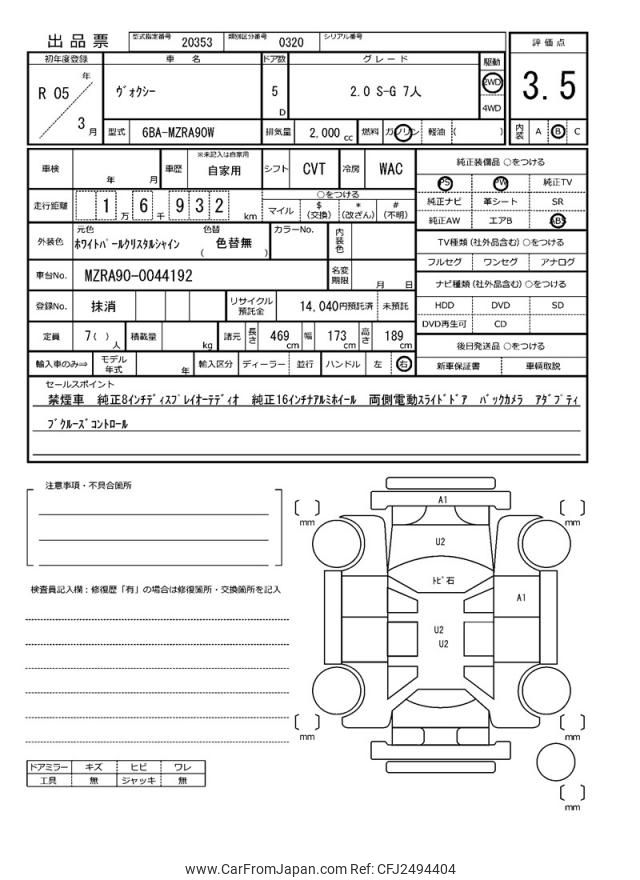 出品票 型式指定番号 20353 類別区分番号 0320 シリアル番号
評価点
3.5
内装 A B C
初年度登録 車名 ドア数 グレード 駆動
R 05 年 3 月
ヴォクシー 5 D 2.0 S-G 7人 2WD
4WD
型式 6BA-MZRA90W 排気量 2,000 cc 燃料 ガソリン 軽油 ( )
車検 年 月 車歴 ※未記入は自家用 自家用 シフト CVT 冷房 WAC
走行距離 1 万 6 千 9 3 2 km
○をつける
マイル $ (交換) * (改ざん) # (不明)
外装色 元色 ホワイトパールクリスタルシャイン 色替 ( 色替無 ) カラーNo. 内装色
車台No. MZRA90-0044192 名変期限 月 日
登録No. 抹消 リサイクル預託金 14,040円預託済 未預託
定員 7( ) 人 積載量 kg 諸元 長さ 469 cm 幅 173 cm 高さ 189 cm
輸入車のみ⇒ モデル年式 年 輸入区分 ディーラー 並行 ハンドル 左 右
純正装備品 ○をつける
PS PW 純正TV
純正ナビ 革シート SR
純正AW エアB ABS
TV種類(社外品含む)○をつける
フルセグ ワンセグ アナログ
ナビ種類(社外品含む)○をつける
HDD DVD SD
DVD再生可 CD
後日発送品 ○をつける
新車保証書 車輌取説
セールスポイント
禁煙車 純正8インチディスプレイオーテディオ 純正16インチナアルミホイール 両側電動スライドドア バックカメラ アダプティ
ブクルーズコントロール
注意事項・不具合箇所
検査員記入欄:修復歴「有」の場合は修復箇所・交換箇所を記入
ドアミラー キズ ヒビ ワレ
工具 無 ジャッキ 無
A1
[ ] mm
[ ] mm
U2
トビ石
A1
U2
U2
[ ] mm
[ ] mm
[ ] mm
www.CarFromJapan.com Ref: CFJ2494404